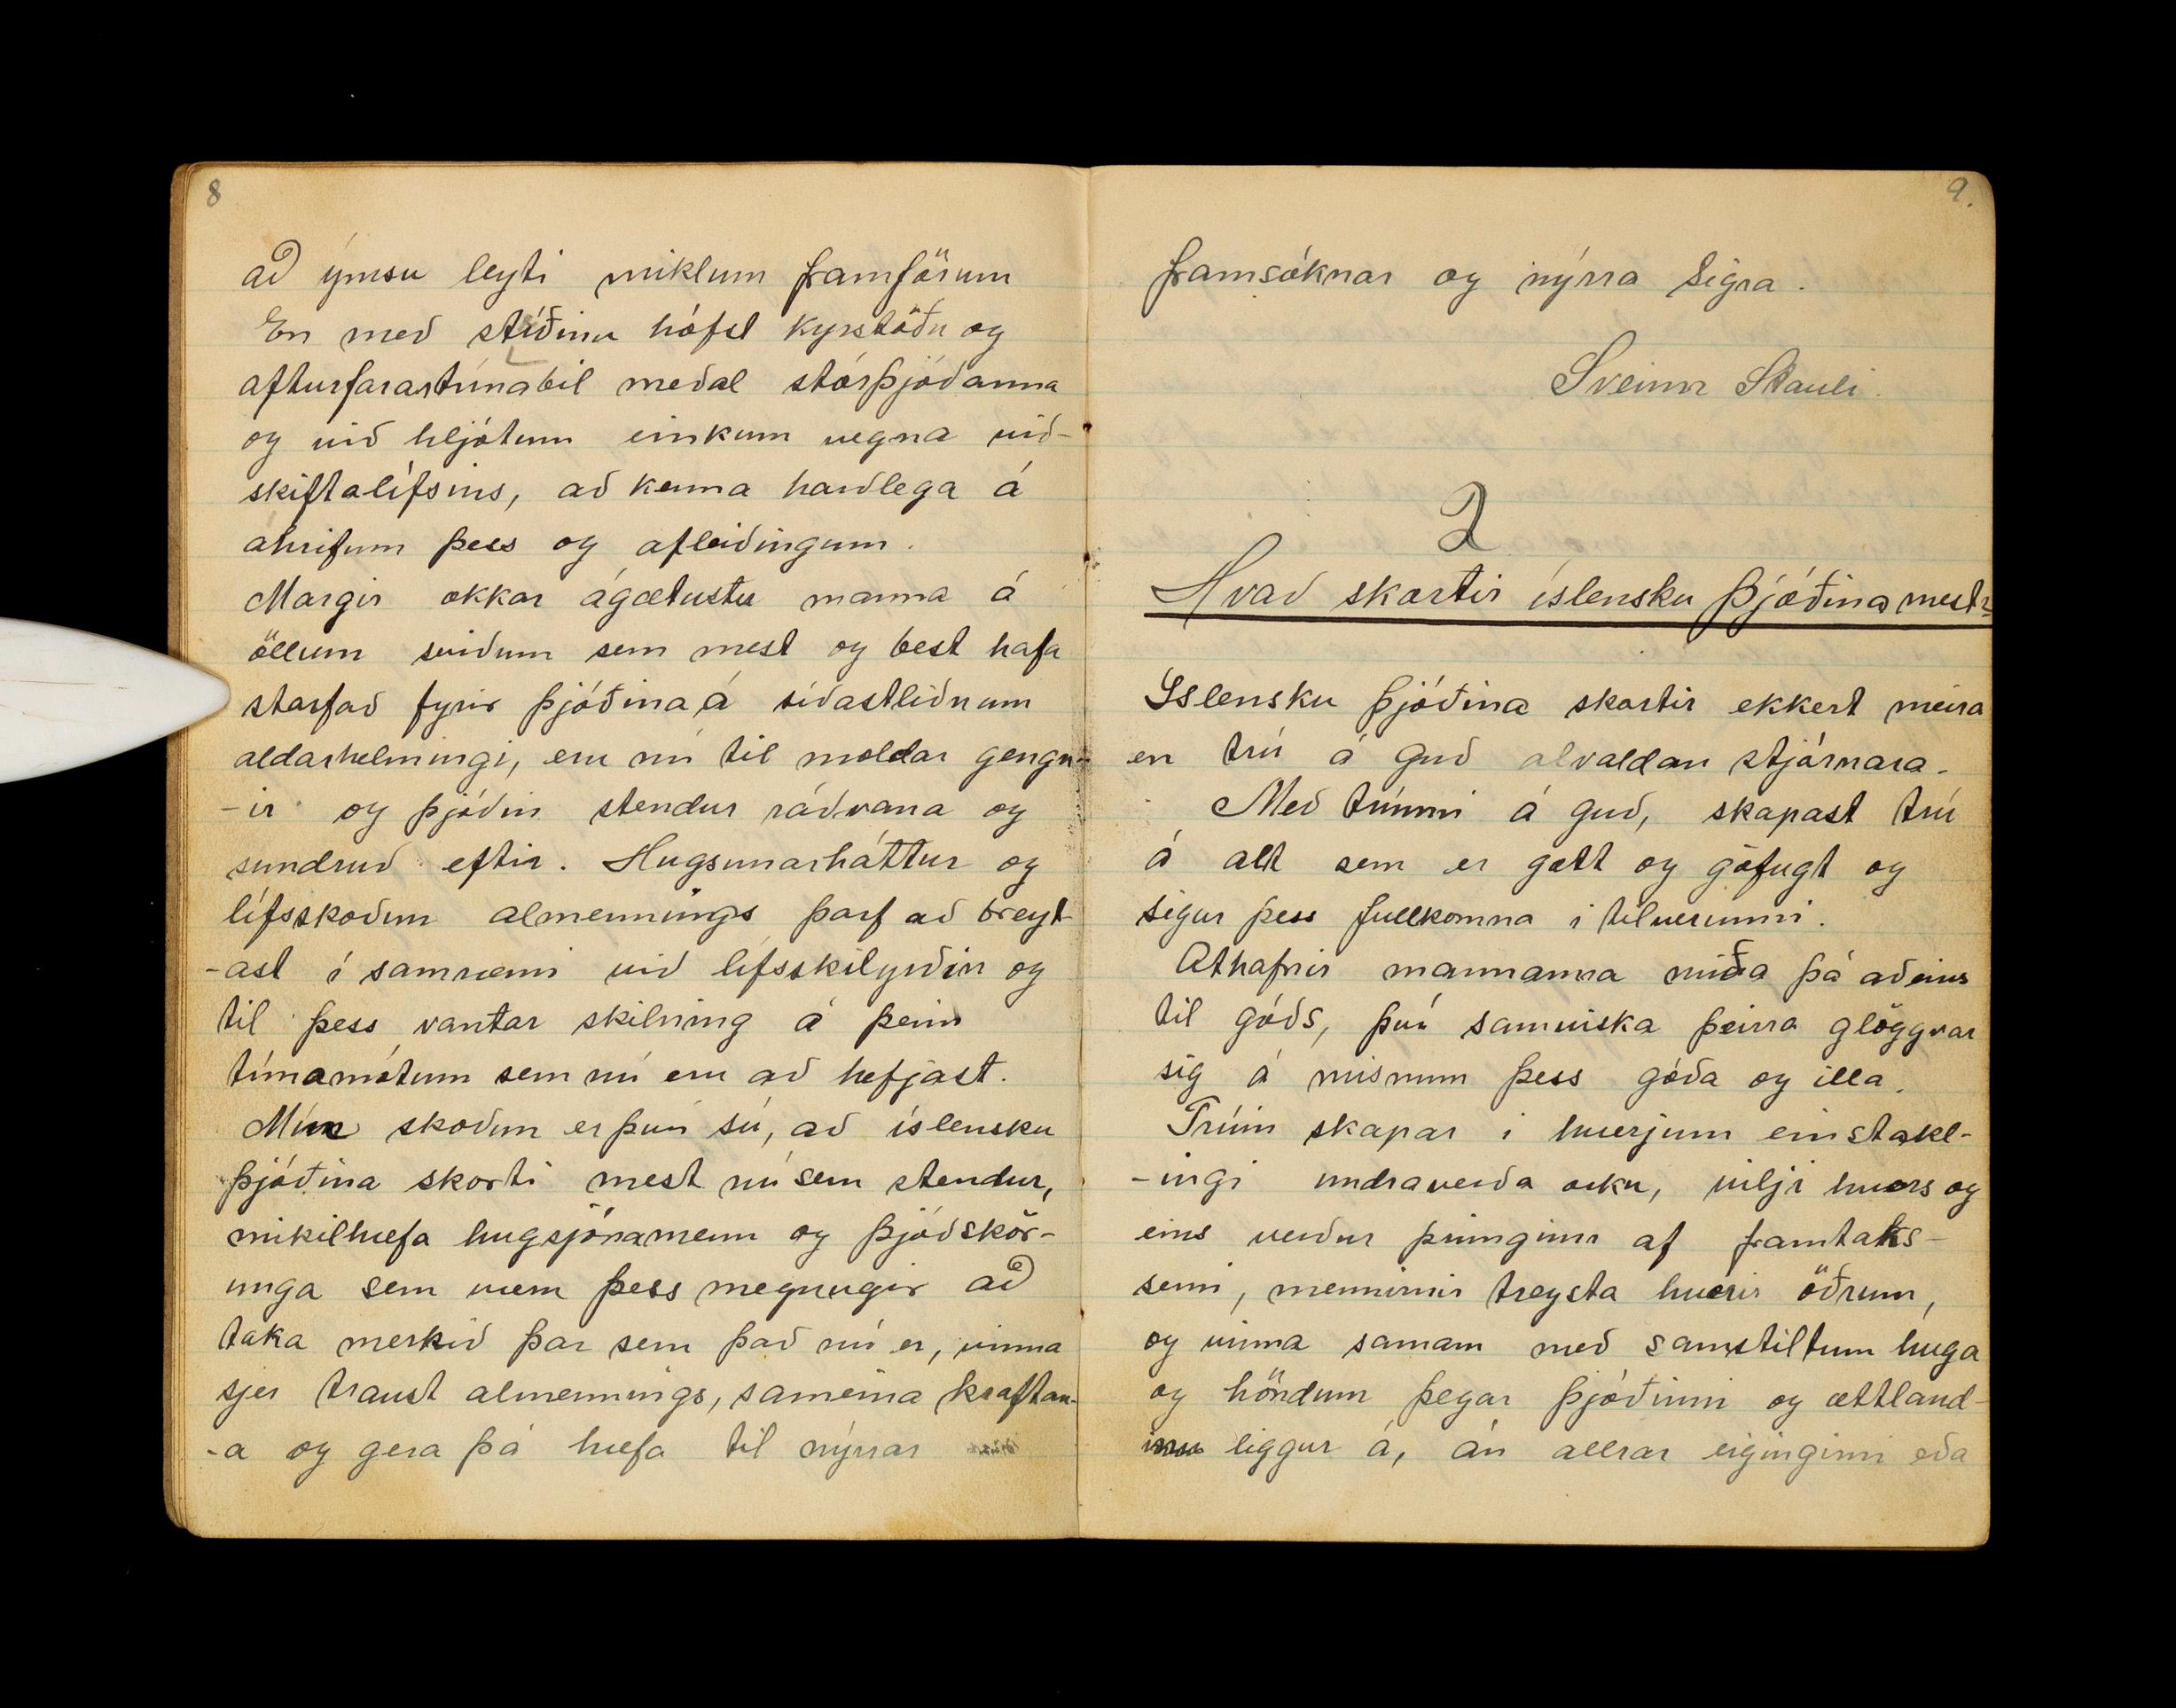 8
að ýmsu leyti miklum framförum
En með stríðinu hófst kyrstöðu og
afturfarartímabil meðal stórþjóðanna
og við hljótum einkum vegna við-
skiftalífsins, að kenna harðlega á
áhrifum þess og afleiðingum.
Margir okkar ágætustu manna á
öllum sviðum sem mest og best hafa
starfað fyrir þjóðina á síðastliðnum
aldarhelmingi, eru nú til moldar gengn-
-ir og þjóðin stendur ráðvana og
sundruð eftir. Hugsunarháttur og
lífsskoðun almennings þarf að breyt-
-ast í samræmi við lífsskilyrðin og
til þess vantar skilning á þeim
tímamótum sem nú eru að hefjast.
Mín skoðun er því sú, að íslensku
þjóðina skorti mest nú sem stendur,
mikilhæfa hugsjónamenn og þjóðskör-
unga sem væru þess megnugir að
taka merkið þar sem það nú er, vinna
sjer traust almennings, sameina kraftan-
-a og gera þá hæfa til nýrrar
9.
framsóknar og nýrra sigra.
Sveinn Skauli.
2
Hvað skortir íslensku þjóðina mest?
Íslensku þjóðina skortir ekkert meira
en trú á guð alvaldan stjórnara.
Með trúnni á guð, skapast trú
á alt sem er gott og göfugt og
sigur þess fullkomna í tilverunni.
Athafnir mannanna miða þá aðeins
til góðs, því samviska þeirra glöggvar
sig á mismun þess góða og illa.
Trúin skapar í hverjum einstakl-
-ingi undraverða orku, vilji hvers og
eins verður þrunginn af framtaks-
semi, mennirnir treysta hverir öðrum,
og vinna saman með samstiltum huga
og höndum þegar þjóðinni og ættland-
inu liggur á, án allrar eigingirni eða